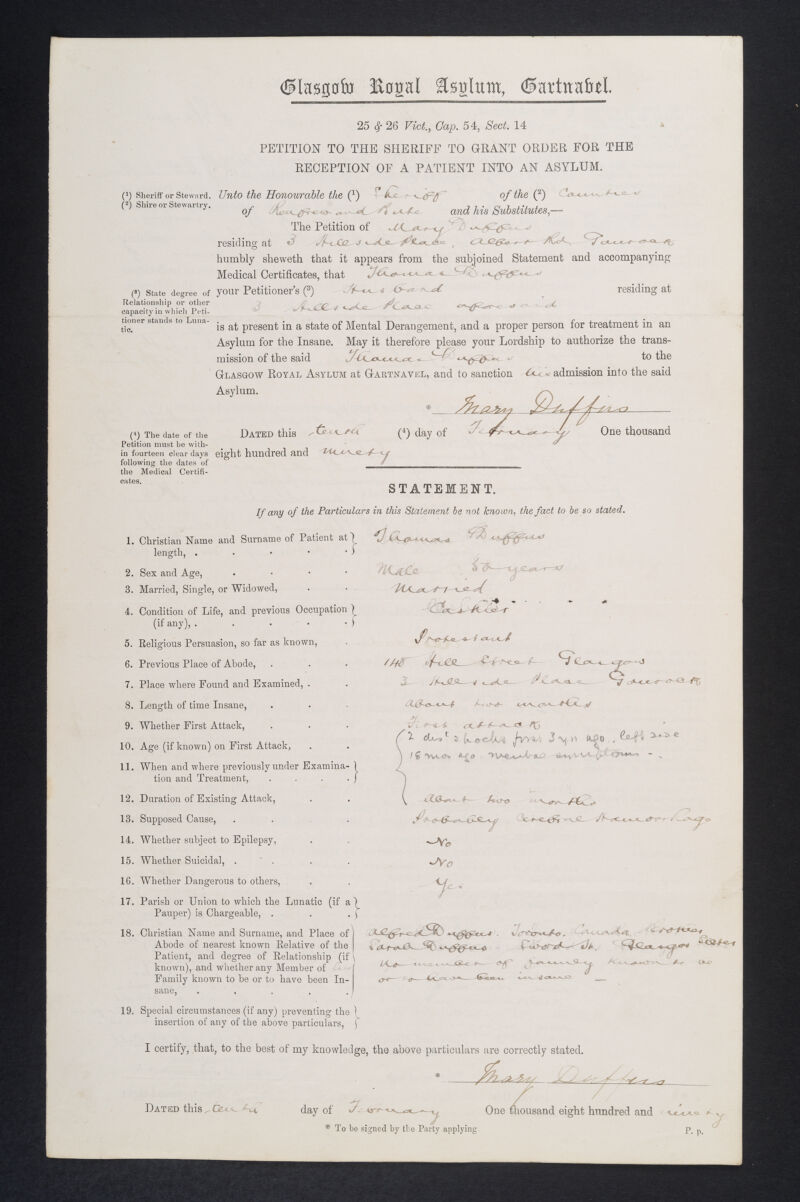 Glasgow Royal Asylum, Gartnabel.
25 & 26 Vict., Cap. 54, Sect. 14
PETITION TO THE SHERIFF TO GRANT ORDER FOR THE
RECEPTION OF A PATIENT INTO AN ASYLUM.
(1) Sheriff or Steward.
(2) Shire or Stewartry.
Unto the Honourable the (1) Sheriff of the (2) Counties
of Renfrew and Bute and his Substitutes,—
The Petition of Mary Duffus
residing at 3 Hillside Place, Albert Rd. Gourock
humbly sheweth that it appears from the subjoined Statement and accompanying
Medical Certificates, that Thomas Duffus
(3) State degree of
Relationship or other
capacity in which Peti-
tioner stands to Luna-
tic.
your Petitioner's (3) Husband residing at
3 Hillside Place aforesaid
is at present in a state of Mental Derangement, and a proper person for treatment in an
Asylum for the Insane. May it therefore please your Lordship to authorize the trans-
mission of the said Thomas Duffus to the
GLASGOW ROYAL ASYLUM at GARTNAVEL, and to sanction his admission into the said
Asylum.
* Mary Duffus
(4) The date of the
Petition must be with-
in fourteen clear days
following the dates of
the Medical Certifi-
cates.
DATED this tenth (4) day of February One thousand
eight hundred and ninety
STATEMENT.
If any of the Particulars in this Statement be not known, the fact to be so stated.
1. Christian Name and Surname of Patient at
length, . . . . . Thomas Duffus
2. Sex and Age, . . . . Male 50 years
3. Married, Single, or Widowed, . . Married
4. Condition of Life, and previous Occupation
(if any), . . . . . Cashier
5. Religious Persuasion, so far as known, . Protestant
6. Previous Place of Abode, . . . 148 Hill Street Glasgow
7. Place where Found and Examined, . . 3 Hillside Place Gourock
8. Length of time Insane, . . . about two months
9. Whether First Attack, . . . First attack
10. Age (if known) on First Attack, . . 2 dist shocks first 3 yrs ago. left side
11. When and where previously under Examina-
tion and Treatment, . . . . 18 mos ago mental symptoms -.
12. Duration of Existing Attack, . . about two months
13. Supposed Cause, . . . Probably Haemorrhage
14. Whether subject to Epilepsy, . . No
15. Whether Suicidal, . . . . No
16. Whether Dangerous to others, . . Yes
17. Parish or Union to which the Lunatic (if a
Pauper) is Chargeable, . . .
18. Christian Name and Surname, and Place of
Abode of nearest known Relative of the
Patient, and degree of Relationship (if
known), and whether any Member of
Family known to be or to have been In-
sane, . . . . . .
Alfred Duffus. Toronto. Canada Brother
Sarah Duffus St. Glasgow Sister
No member of family known to be
or to have been insane —
19. Special circumstances (if any) preventing the
insertion of any of the above particulars,
I certify, that, to the best of my knowledge, the above particulars are correctly stated.
* Mary Duffus
DATED this tenth day of February One thousand eight hundred and ninety
* To be signed by the Party applying
P. p.